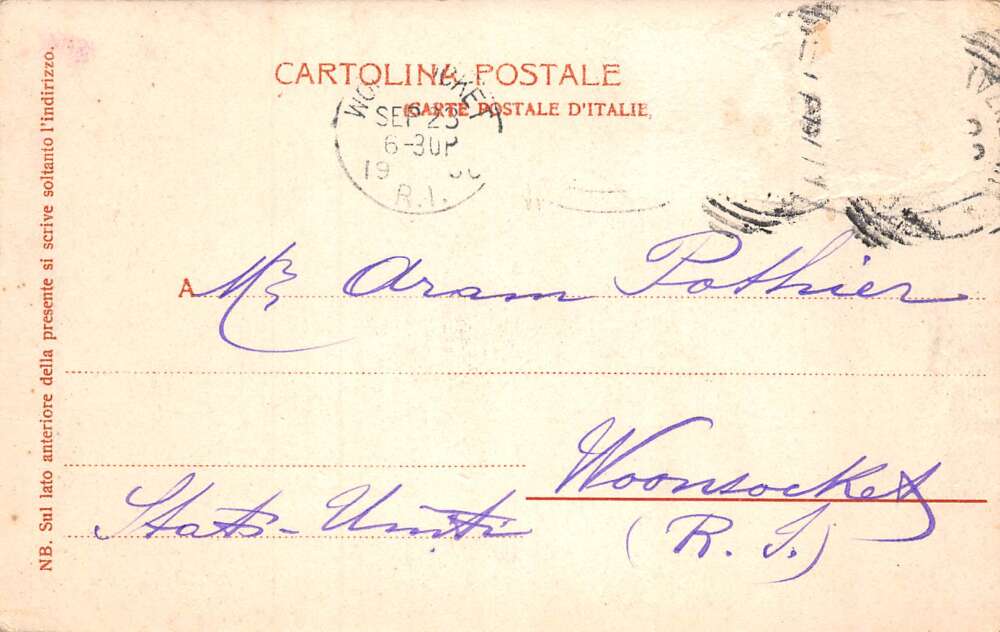 CARTOLINA POSTALE
(CARTE POSTALE D'ITALIE)
SEP 23
6-30P
19
R.I.
NB. Sul lato anteriore della presente si scrive soltanto l'indirizzo.
A Mr Aram Pothier
Woonsocket
Stati-Uniti (R. I.)